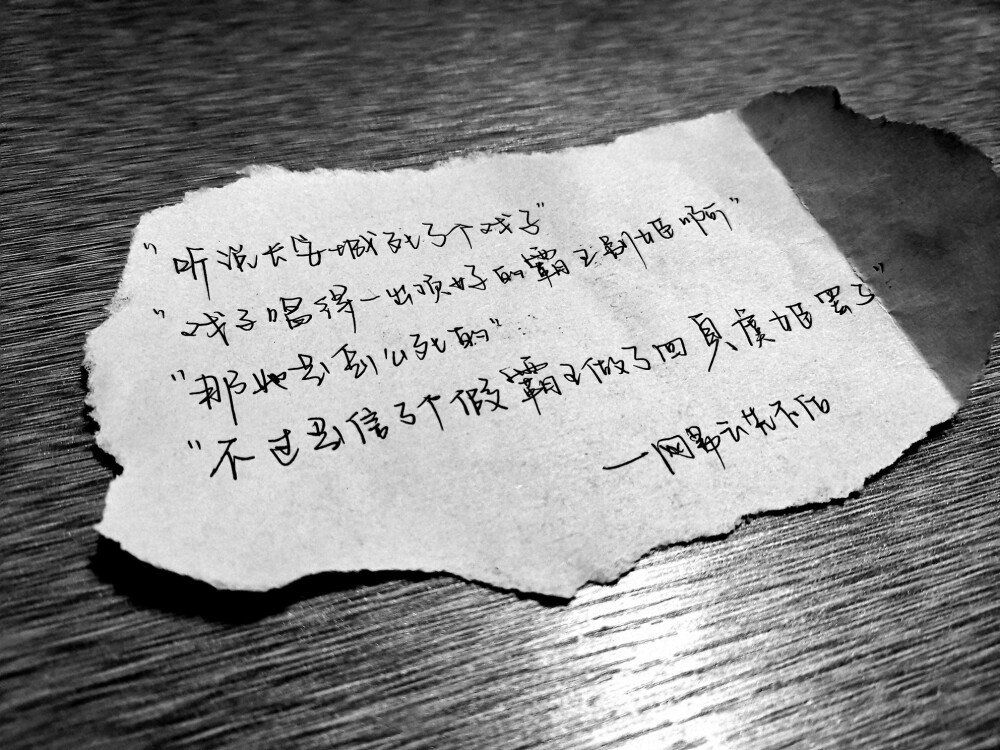 "听说长安城死了个戏子"
"戏子唱得一出顶好的霸王别姬啊"
"那她是怎么死的"
"不过是信了个假霸王做了回真虞姬罢了"
—网易云